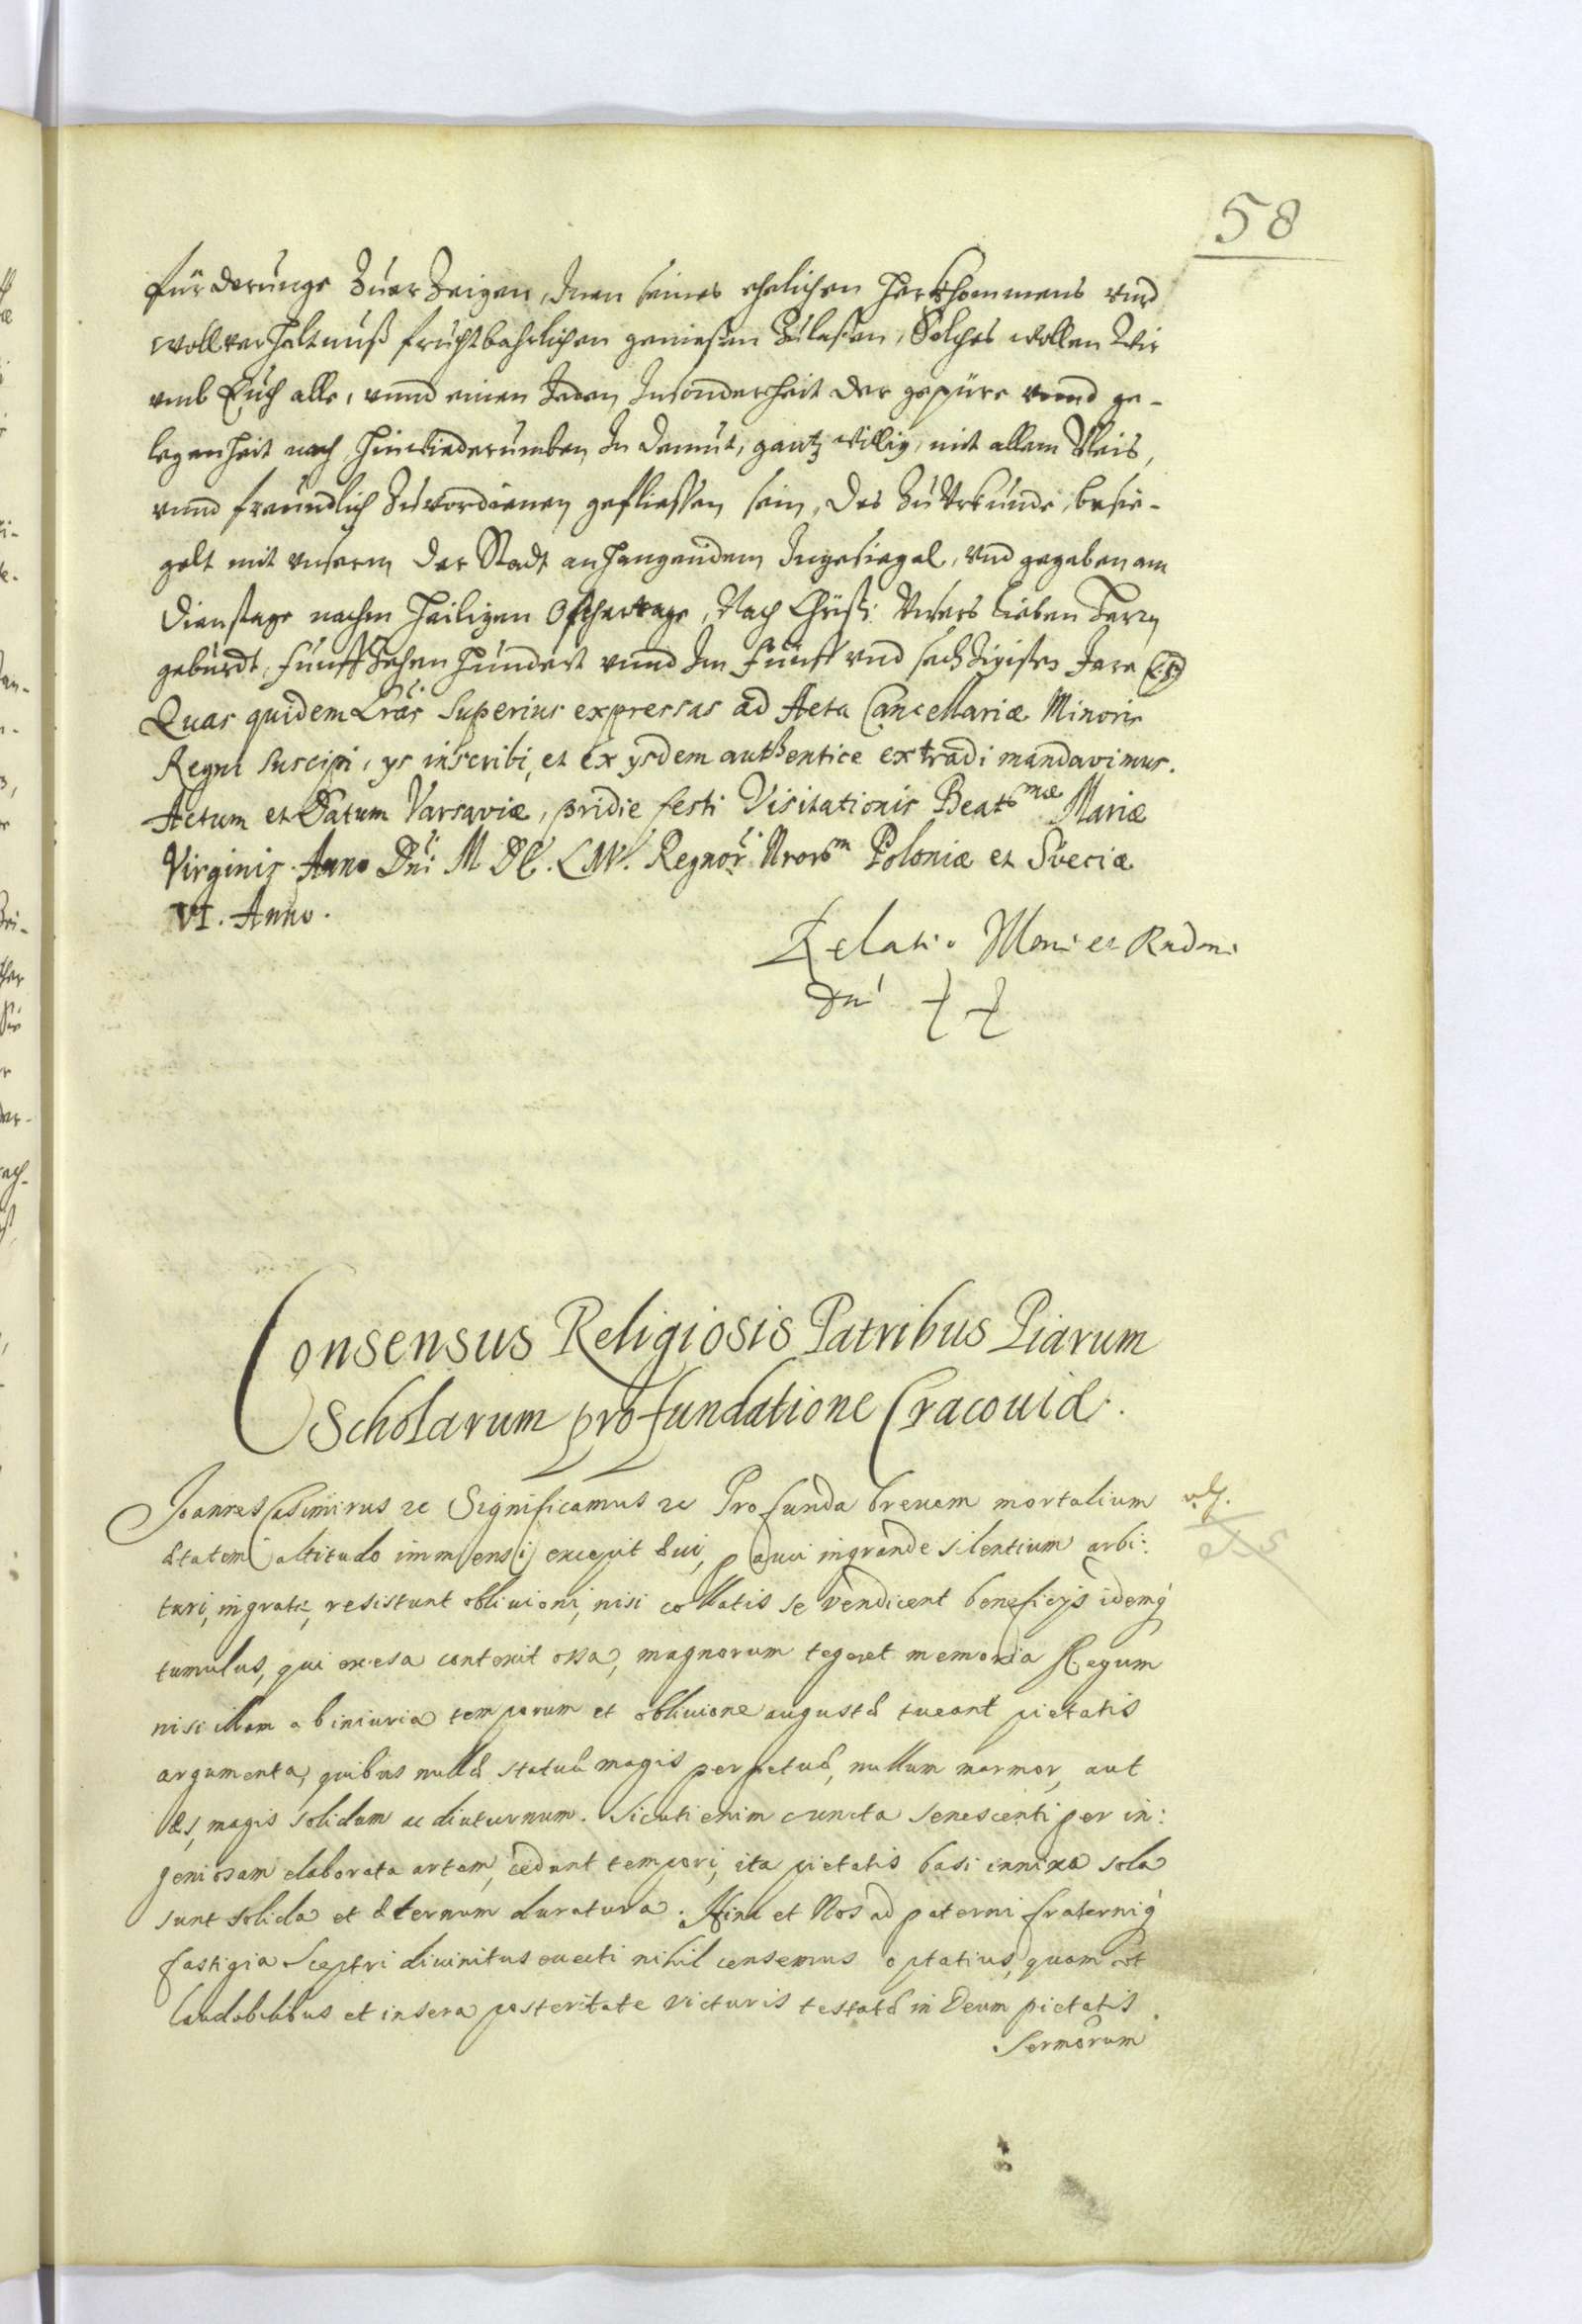 58
fürderunge Zuer Zeigen, Inen seines ehelichen Herkhommens vnd
wollverhaltnuß fruchtbahrlichen genießen Zulaßen, Solches wollen Wir
vmb Euch alle, vnnd einen Jeden Insonderheit der gepüre vnnd ge-
legenheit nach hinwiederumben In demut, gantz willig, mit allem Vleis,
vnnd freundlich Zuvordienen gefließen sein, Des Zu Vrkunde, besie-
gelt mit vnserm der Stadt anhangendem Ingesiegel, vnd gegeben am
Dienstage nachm Heiligen Ostertage, Nach Christi Vnsers lieben Herrn
geburdt, funffZehen hundert vnnd Im funff vnd sechzigisten Jare
Quas quidem Lrãs Superius expressas ad Acta Cancellariæ Minoris
Regni Suscipi, ys inscribi, et ex ysdem authentice extradi mandavimus.
Actum et Datum Varsaviæ, pridie festi Visitationis Beatmæ Mariæ
Virginis. Anno Dni M DC. LIV. Regnor Nrorm Poloniæ et Sveciæ
VI. Anno.
Relatio
Dni
Consensus Religiosis Patribus Piarum
Scholarum pro fundatione Cracouiæ.
Joannes Casimirus &c Significamus &c Profunda breuem mortalium
ætatem altitudo immensi excepit æui, pauci in grande silentium arbi:
turi, ingratæ resistunt obliuioni, nisi collatis se vendicent beneficijs idemq́
tumulus, qui exesa contexit ossa, magnorum tegeret memoria Regum
nisi illam ab iniuria temporum et obliuione augustæ tueant pietatis
argumenta, quibus nulla statuæ magis perpetuæ, nullum marmor, aut
æs, magis solidum ac diuturnum. Sicuti enim cuncta senescenti per in:
geniosam elaborata artem, cedunt tempori, ita pietatis basi innixa sola
sunt solida et æternum duratura. Hinc et Nos ad paterni fraterniq́
fastigia Sceptri diuinitus euecti nihil censemus optatius, quam ut
laudabilibus et in sera posteritate victuris testatæ in Deum pietatis
Sermorum